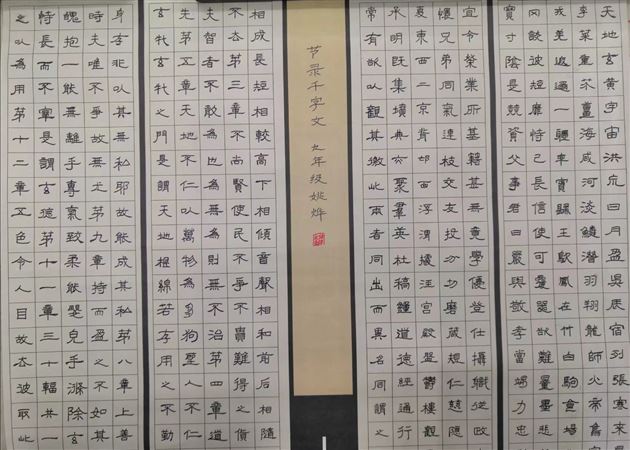 天地玄黃宇宙洪荒日月盈昃辰宿列張寒來
李柰菜重芥薑海咸河淡鱗潛羽翔龍師火帝
我羌遐邇壹體率賓歸王鳴鳳在竹白駒食場
罔談彼短靡恃己長信使可覆器欲難量墨悲
寶寸陰是競資父事君曰嚴與敬孝當竭力忠
宜令榮業所基籍甚無竟學優登仕攝職從政
懷兄弟同氣連枝交友投分切磨箴規仁慈隱
夏東西二京背邙面浮渭據涇宮殿盤鬱樓觀
承明既集墳典亦聚羣英杜稿鍾道德經通行
常有欲以觀其徼此兩者同出而異名同謂之
节录千字文 九年级姚烨
相成長短相較高下相傾音聲相和前后相隨
不去第三章不尚賢使民不爭不貴難得之貨
夫智者不敢為也為無為則無不治第四章道
先第五章天地不仁以萬物為芻狗聖人不仁
玄牝玄牝之門是謂天地根綿若存用之不勤
身存非以其無私邪故能成其私第八章上善
時夫唯不爭故無尤第九章持而盈之不如其
魄抱一能無離乎專氣致柔能嬰兒乎滌除玄
恃長而不宰是謂玄德第十一章三十輻共一
之以為用第十二章五色令人目故去彼取此